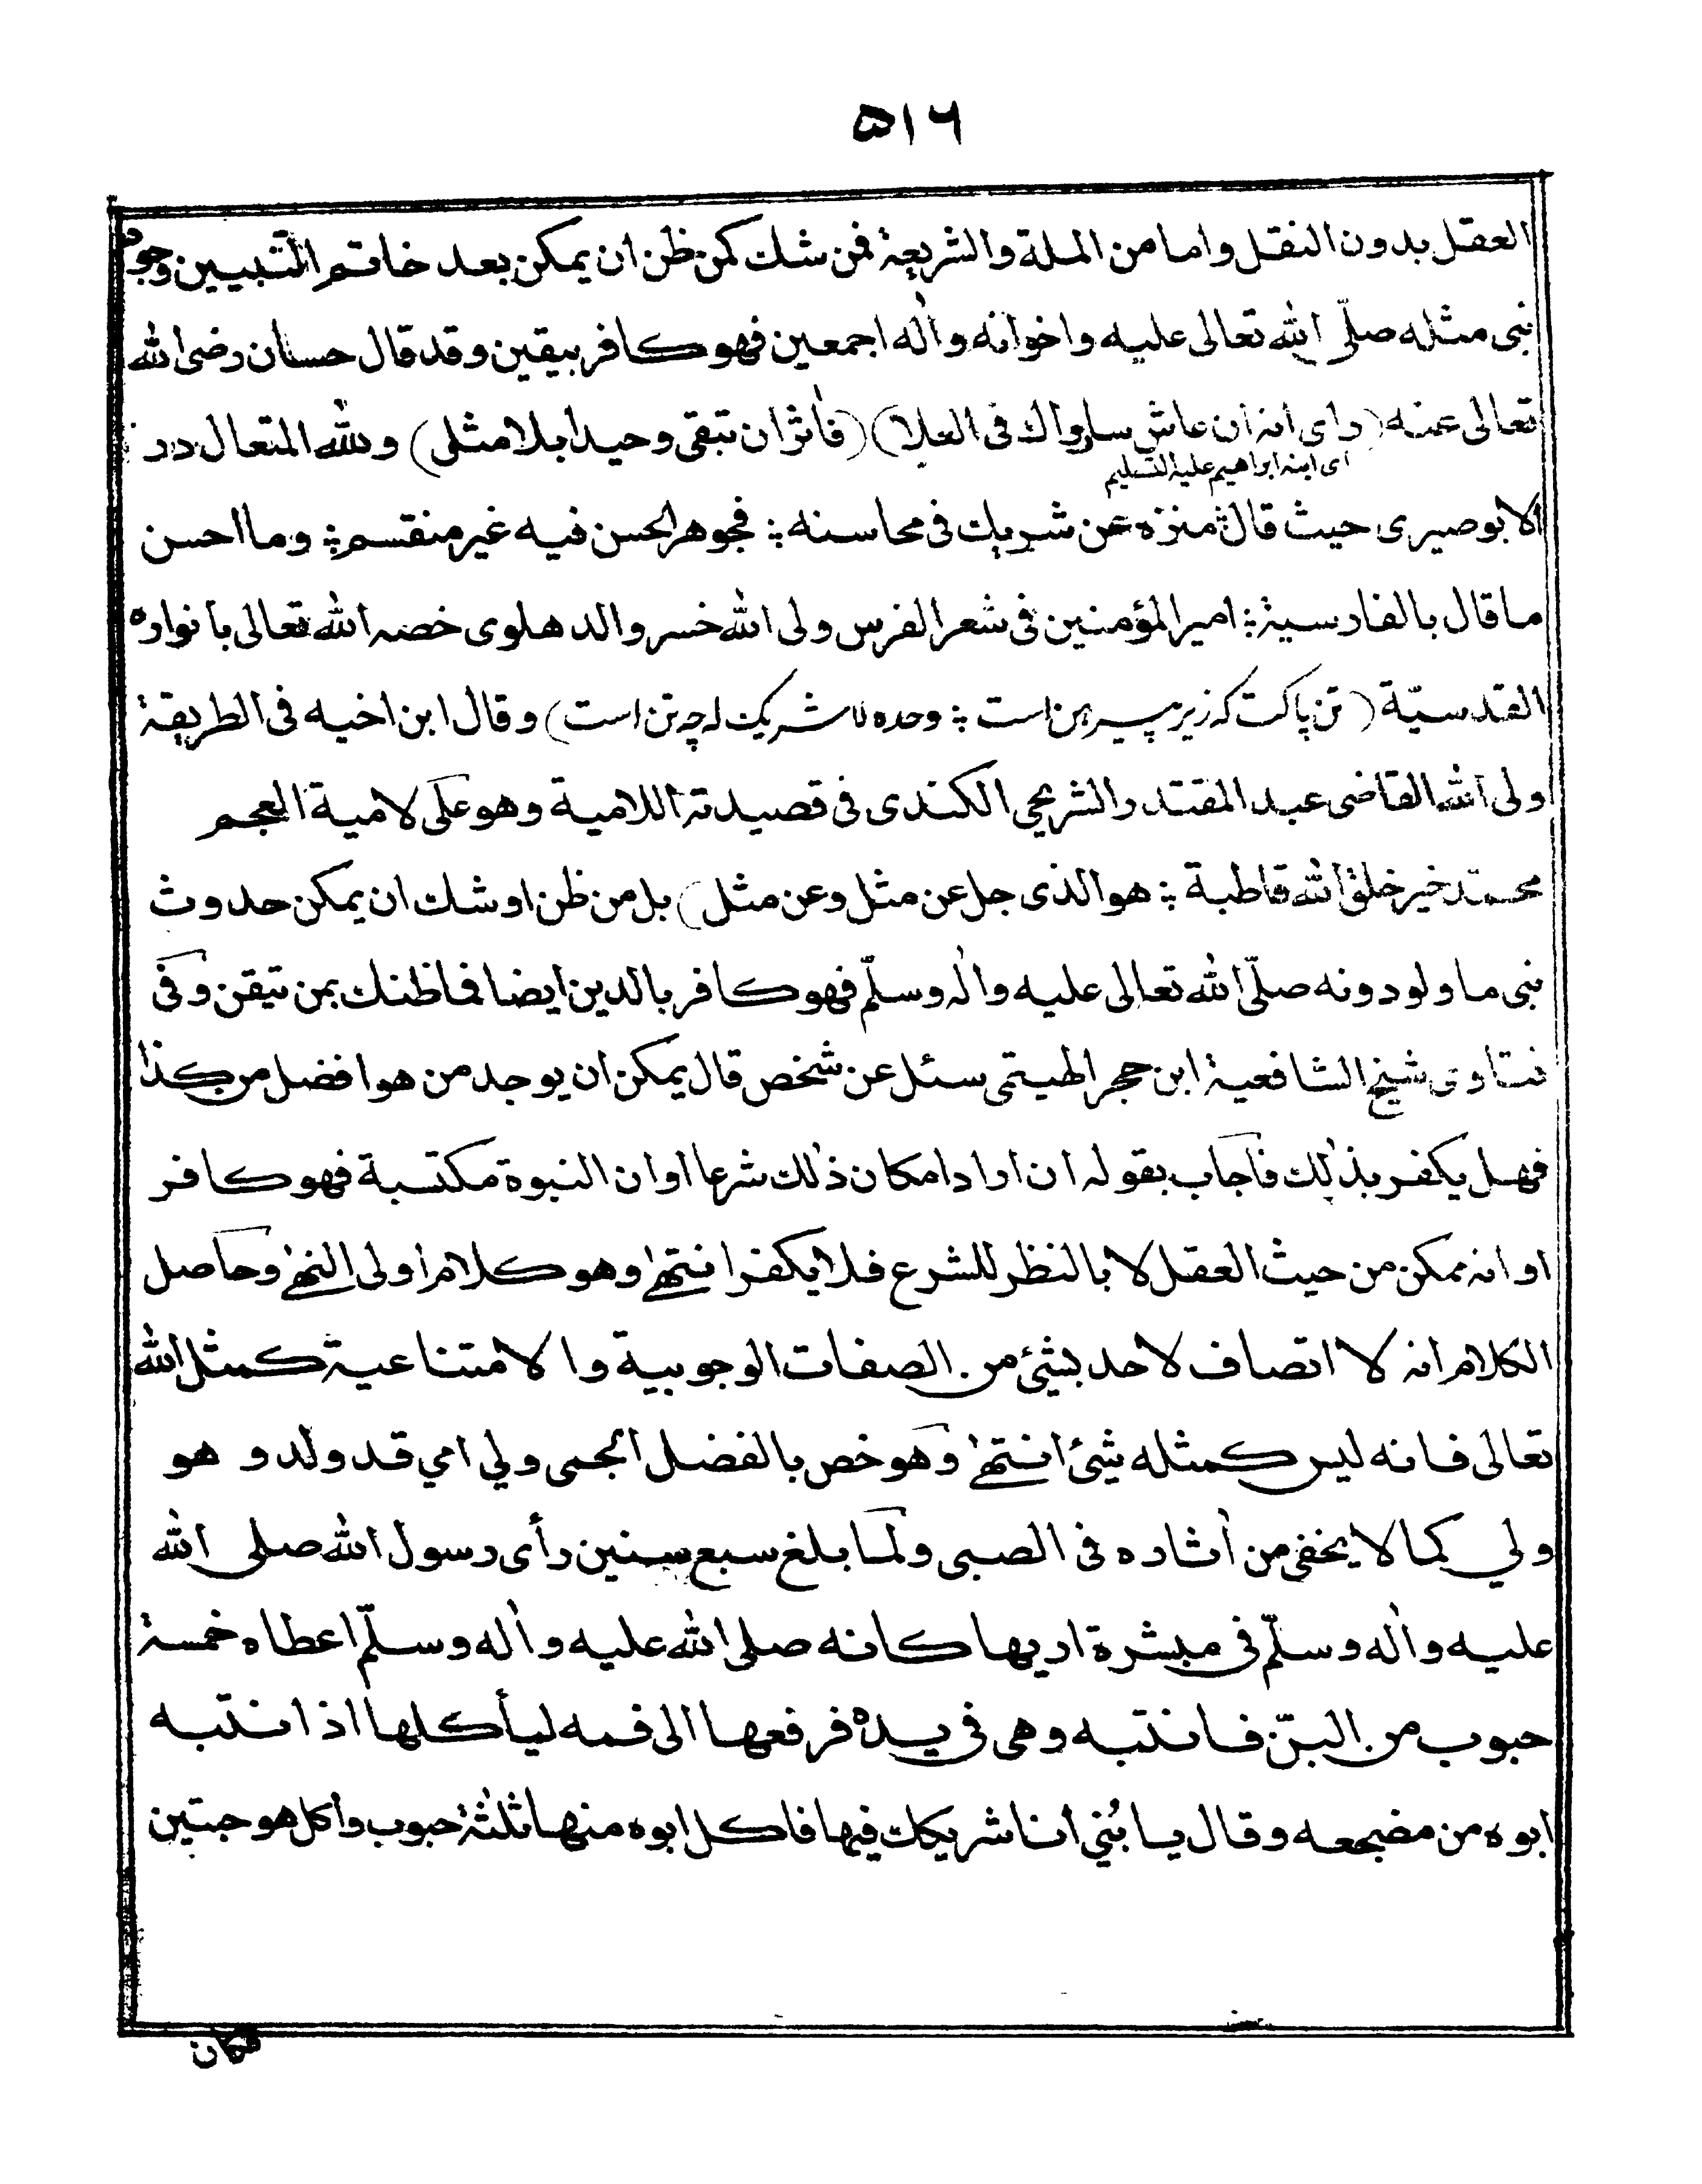 ٥١٦
العقل بدون النقل واما من الملة والشريعة فمن شك كمن ظن ان يمكن بعد خاتم النبيين وجود
نبى مثله صلّى الله تعالى عليه واخوانه واٰله اجمعين فهو كافر بيقين وقد قال حسان رضى الله
تعالى عنه (راى انه ان عاش ساواك فى العلا) (فاٰثر ان تبقى وحيدا بلا مثل) ولله المتعال در
اى ابنه ابراهيم عليه التسليم
الابوصيرى حيث قال منزه عن شريك فى محاسنه ؛ فجوهر الحسن فيه غير منقسم ؛ وما احسن
ما قال بالفارسية ؛ امير المؤمنين فى شعر الفرس ولى الله خسرو الدهلوى خصه الله تعالى بانواره
القدسيّة (تن پاكت كه زير پيرهن است ؛ وحده لا شريك له چه تن است) وقال ابن اخيه فى الطريقة
ولى الله القاضى عبد المقتدر الشريحي الكندى فى قصيدته اللامية وهو على لامية العجم
محمد خير خلق الله قاطبة ؛ هو الذى جل عن مثل وعن مثل) بل من ظن او شك ان يمكن حدوث
نبى ما ولو دونه صلّى الله تعالى عليه واٰله وسلّم فهو كافر بالدين ايضا فما ظنك بمن تيقن وفى
فتاوى شيخ الشافعية ابن حجر الهيتمى سئل عن شخص قال يمكن ان يوجد من هو افضل من كذا
فهل يكفر بذٰلك فاجاب بقوله ان اراد امكان ذٰلك شرعا او ان النبوة مكتسبة فهو كافر
او انه ممكن من حيث العقل لا بالنظر للشرع فلا يكفر انتهٰى وهو كلام اولى النهٰى وحاصل
الكلام انه لا اتصاف لاحد بشئ من الصفات الوجوبية والامتناعية كمثل الله
تعالى فانه ليس كمثله شئ انتهٰى وهو خص بالفضل الجمى ولي امي قد ولد و هو
ولي كما لا يخفى من اٰثاره فى الصبى ولما بلغ سبع سنين رأى رسول الله صلى الله
عليه واٰله وسلّم فى مبشرة اريها كانه صلى الله عليه واٰله وسلّم اعطاه خمسة
حبوب من البنّ فانتبه وهى فى يده فرفعها الى فمه ليأكلها اذا نتبه
ابوه من مضجعه وقال يا بُني أنا شريكك فيها فاكل ابوه منها ثلٰثة حبوب وأكل هو حبتين
فكان